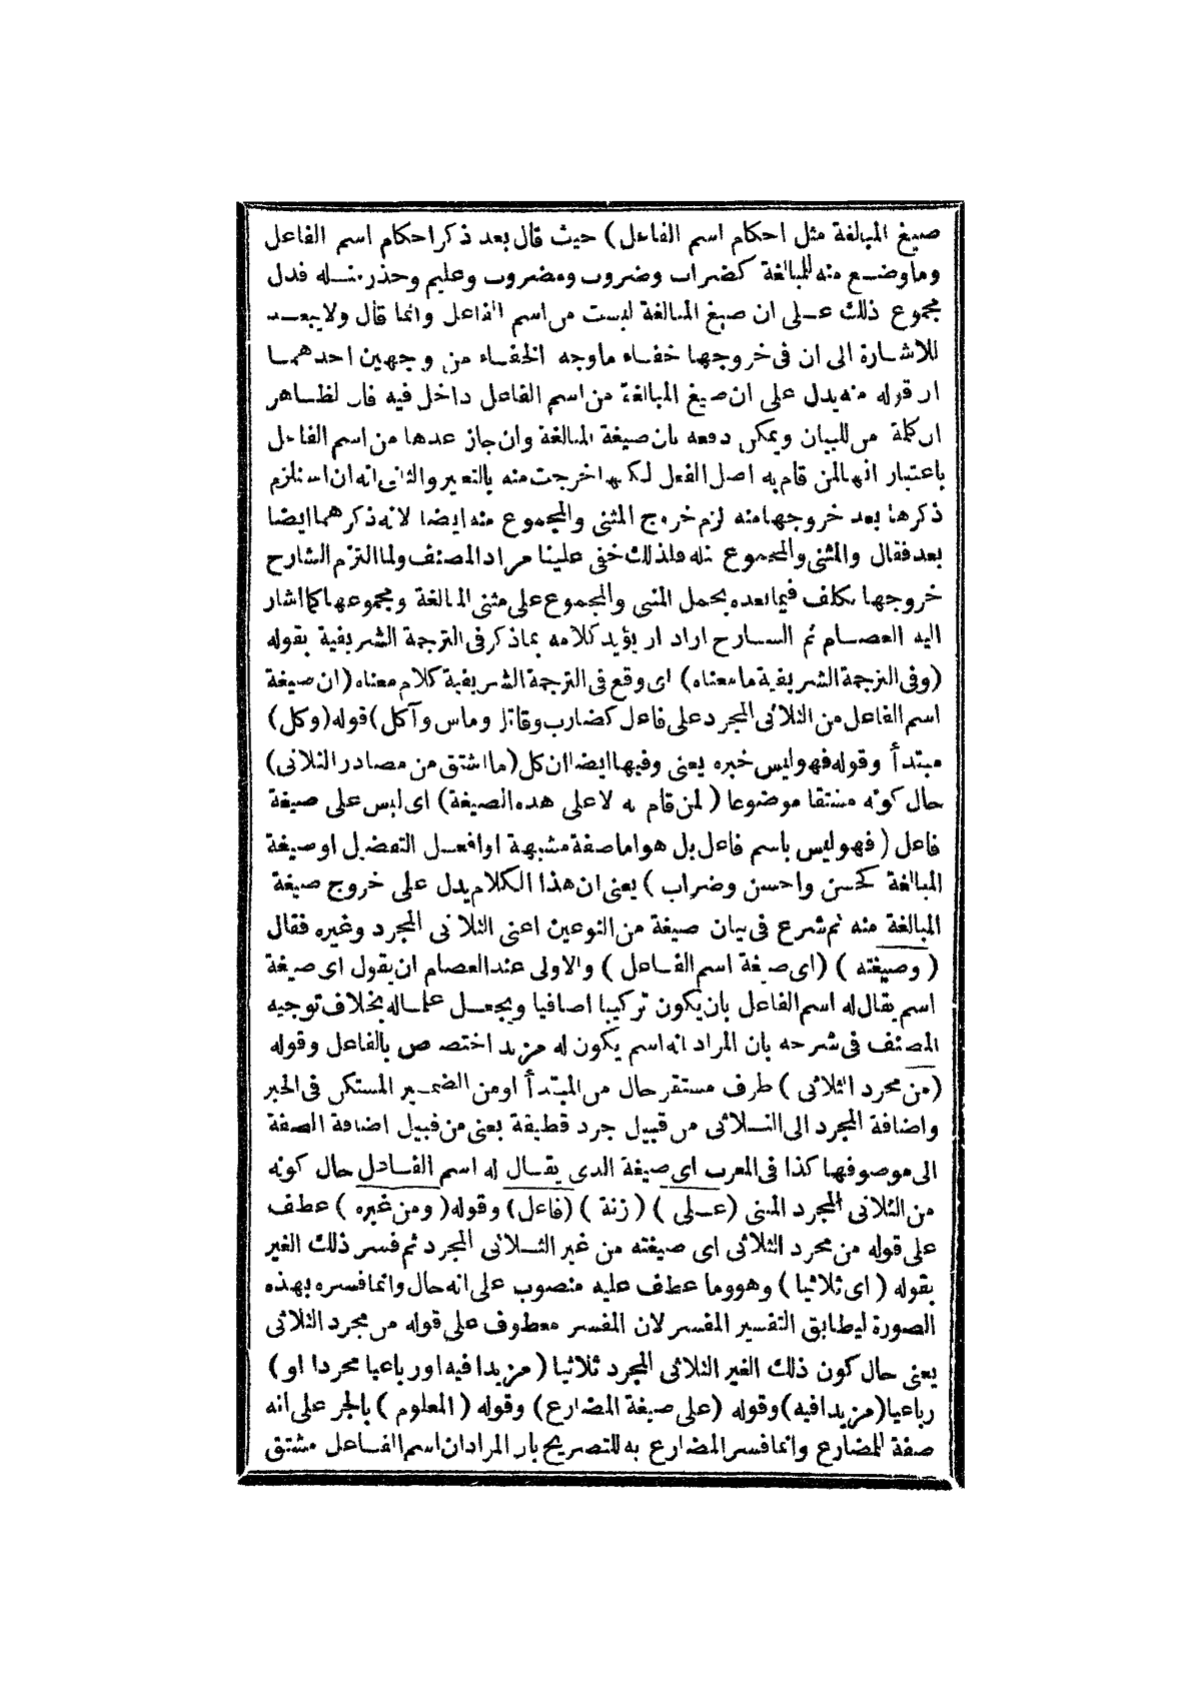 صيغ المبالغة مثل احكام اسم الفاعل) حيث قال بعد ذكر احكام اسم الفاعل
وما وضع منه للمبالغة كضراب وضروب ومضروب وعليم وحذر مثله فدل
مجموع ذلك على ان صيغ المبالغة ليست من اسم الفاعل وانما قال ولا يبعد
للاشارة الى ان فى خروجها خفاء ما وجه الخفاء من وجهين احدهما
ان قوله منه يدل على ان صيغ المبالغة من اسم الفاعل داخل فيه فان لظاهر
ان كلة من للبيان ويمكن دفعه بان صيغة المبالغة وان جاز عدها من اسم الفاعل
باعتبار انها لمن قام به اصل الفعل لكنها اخرجت منه بالتعبير والثانى انه ان استلزم
ذكرها بعد خروجها منه لزم خروج المثنى والمجموع منه ايضا لانه ذكرهما ايضا
بعد فقال والمثنى والمجموع مثله فلذلك خفى علينا مراد المصنف ولما التزم الشارح
خروجها تكلف فيما بعده بحمل المثنى والمجموع على مثنى المبالغة ومجموعها كما اشار
اليه العصام ثم الشارح اراد ان يؤيد كلامه بما ذكر فى الترجمة الشريفية بقوله
(وفى الترجمة الشريفية ما معناه) اى وقع فى الترجمة الشريفية كلام معناه (ان صيغة
اسم الفاعل من الثلاثى المجرد على فاعل كضارب وقاتل وماس وآكل) قوله (وكل)
مبتدأ وقوله فهو ليس خبره يعنى وفيها ايضا ان كل (ما اشتق من مصادر الثلاثى)
حال كونه مشتقا موضوعا (لمن قام به لا على هذه الصيغة) اى ليس على صيغة
فاعل (فهو ليس باسم فاعل بل هو اما صفة مشبهة او افعل التفضيل او صيغة
المبالغة كحسن واحسن وضراب) يعنى ان هذا الكلام يدل على خروج صيغة
المبالغة منه ثم شرع فى بيان صيغة من النوعين اعنى الثلاثى المجرد وغيره فقال
(وصيغته) (اى صيغة اسم الفاعل) والاولى عند العصام ان يقول اى صيغة
اسم يقال له اسم الفاعل بان يكون تركيبا اضافيا ويجعل علما له بخلاف توجيه
المصنف فى شرحه بان المراد انه اسم يكون له مزيد اختصاص بالفاعل وقوله
(من مجرد الثلاثى) ظرف مستقر حال من المبتدأ او من الضمير المستكن فى الخبر
واضافة المجرد الى الثلاثى من قبيل جرد قطيفة يعنى من قبيل اضافة الصفة
الى موصوفها كذا فى المعرب اى صيغة الذى يقال له اسم الفاعل حال كونه
من الثلاثى المجرد المبنى (على) (زنة) (فاعل) وقوله (ومن غيره) عطف
على قوله من مجرد الثلاثى اى صيغته من غير الثلاثى المجرد ثم فسر ذلك الغير
بقوله (اى ثلاثيا) وهو وما عطف عليه منصوب على انه حال وانما فسره بهذه
الصورة ليطابق التفسير المفسر لان المفسر معطوف على قوله من مجرد الثلاثى
يعنى حال كون ذلك الغير الثلاثى المجرد ثلاثيا (مزيدا فيه او رباعيا مجردا او)
رباعيا (مزيدا فيه) وقوله (على صيغة المضارع) وقوله (المعلوم) بالجر على انه
صفة للمضارع وانما فسر المضارع به للتصريح بان المراد ان اسم الفاعل مشتق